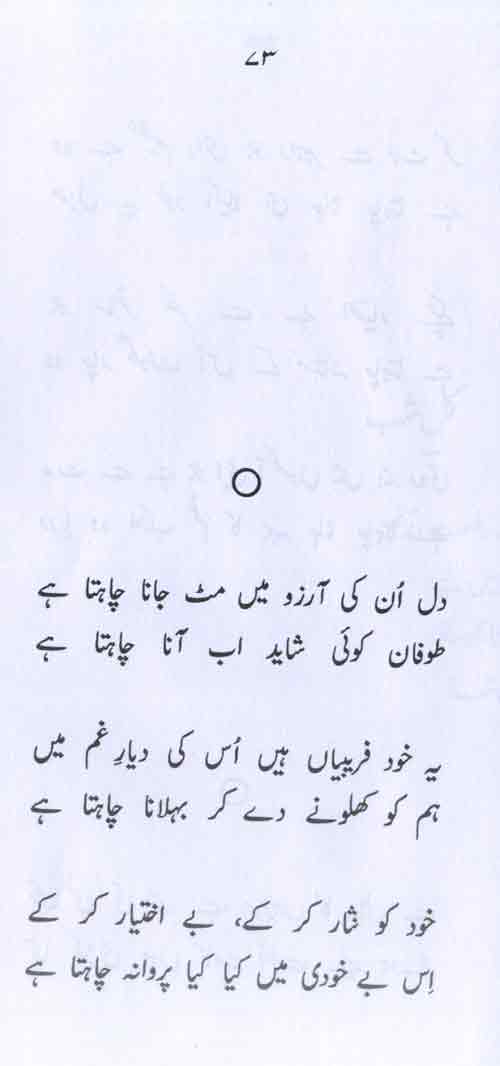 ۷۳
دل اُن کی آرزو میں مٹ جانا چاہتا ہے
طوفان کوئی شاید اب آنا چاہتا ہے
یہ خود فریبیاں ہیں اُس کی دیارِ غم میں
ہم کو کھلونے دے کر بہلانا چاہتا ہے
خود کو نثار کر کے، بے اختیار کر کے
اِس بے خودی میں کیا کیا پروانہ چاہتا ہے